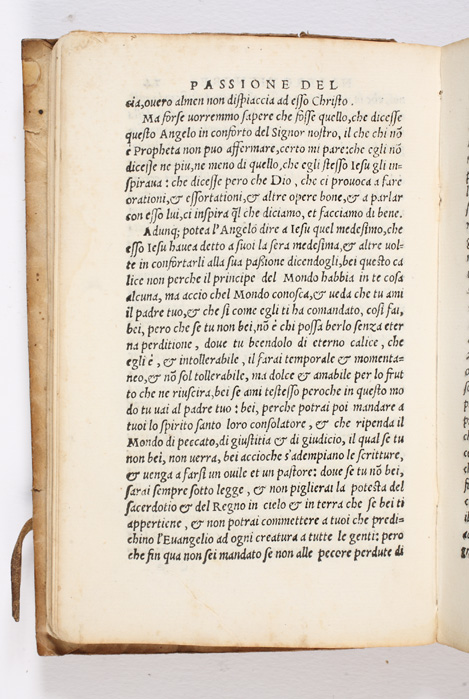 PASSIONE DEL
cia, overo almen non dispiaccia ad esso Christo.
Ma forse uorremmo sapere che fosse quello, che dicesse
questo Angelo in conforto del Signor nostro, il che chi nõ
è Propheta non puo affermare, certo mi pare: che egli nõ
dicesse ne piu, ne meno di quello, che egli stesso Iesu gli in=
spiraua: che dicesse pero che Dio, che ci prouoca a fare
orationi, & essortationi, & altre opere bone, & a parlar
con esso lui, ci inspira q̃l che diciamo, et facciamo di bene.
Adunq; potea l'Angelo dire a Iesu quel medesimo, che
esso Iesu hauea detto a suoi la sera medesima, & altre uol=
te in confortarli alla sua passione dicendogli, bei questo ca
lice non perche il principe del Mondo habbia in te cosa
alcuna, ma accio chel Mondo conosca, & ueda che tu ami
il padre tuo, & che si come egli ti ha comandato, cosi fai,
bei, pero che se tu non bei, nõ è chi possa berlo senza eter
na perditione, doue tu beendolo di eterno calice, che
egli è, & intollerabile, il farai temporale & momenta=
neo, & nõ sol tollerabile, ma dolce & amabile per lo frut
to che ne riuscira, bei se ami testesso peroche in questo mo
do tu uai al padre tuo: bei, perche potrai poi mandare a
tuoi lo spirito santo loro consolatore, & che ripenda il
Mondo di peccato, di giustitia & di giudicio, il qual se tu
non bei, non uerra, bei accioche s'adempiano le scritture,
& uenga a farsi un ouile et un pastore: doue se tu nõ bei,
sarai sempre sotto legge, & non piglierai la potesta del
sacerdotio & del Regno in cielo & in terra che se bei ti
appertiene, & non potrai commettere a tuoi che predi=
chino l'Euangelio ad ogni creatura a tutte le genti: pero
che fin qua non sei mandato se non alle pecore perdute di